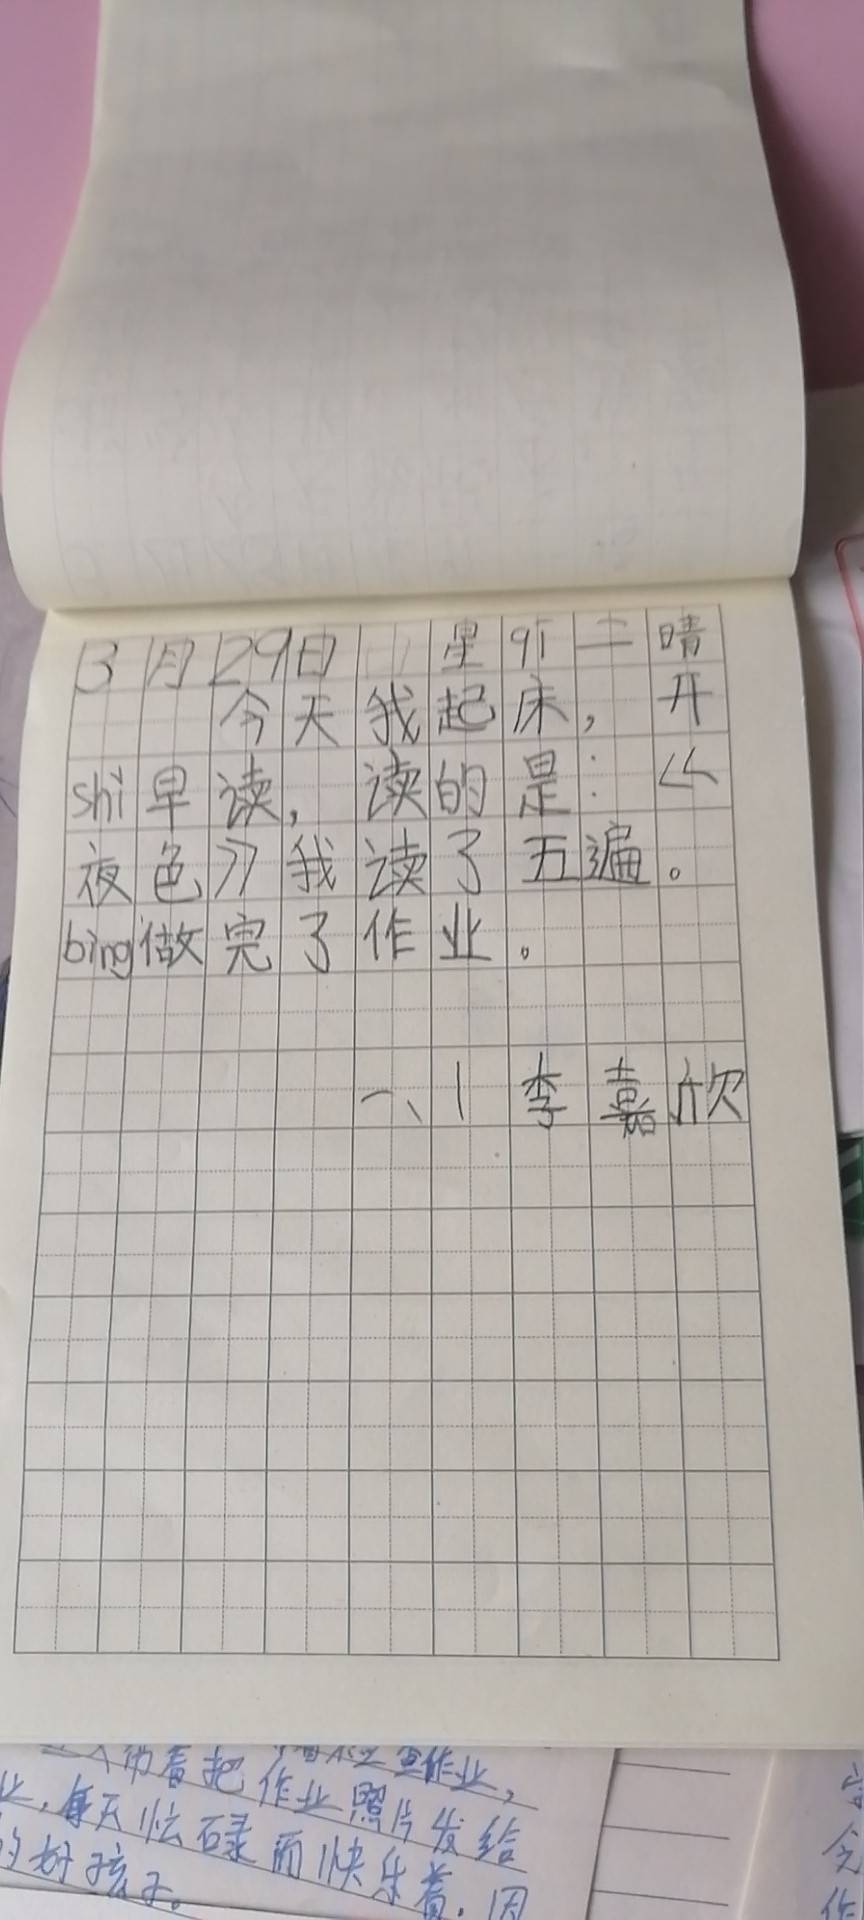 3月29日 星qī二 晴
今天我起床，开
shi早读，读的是：《
夜色》我读了五遍。
bìng做完了作业。
一、1 李嘉欣
着把 作业，
业，每天忙碌而快乐着，因
作业照片发给
的好孩子。